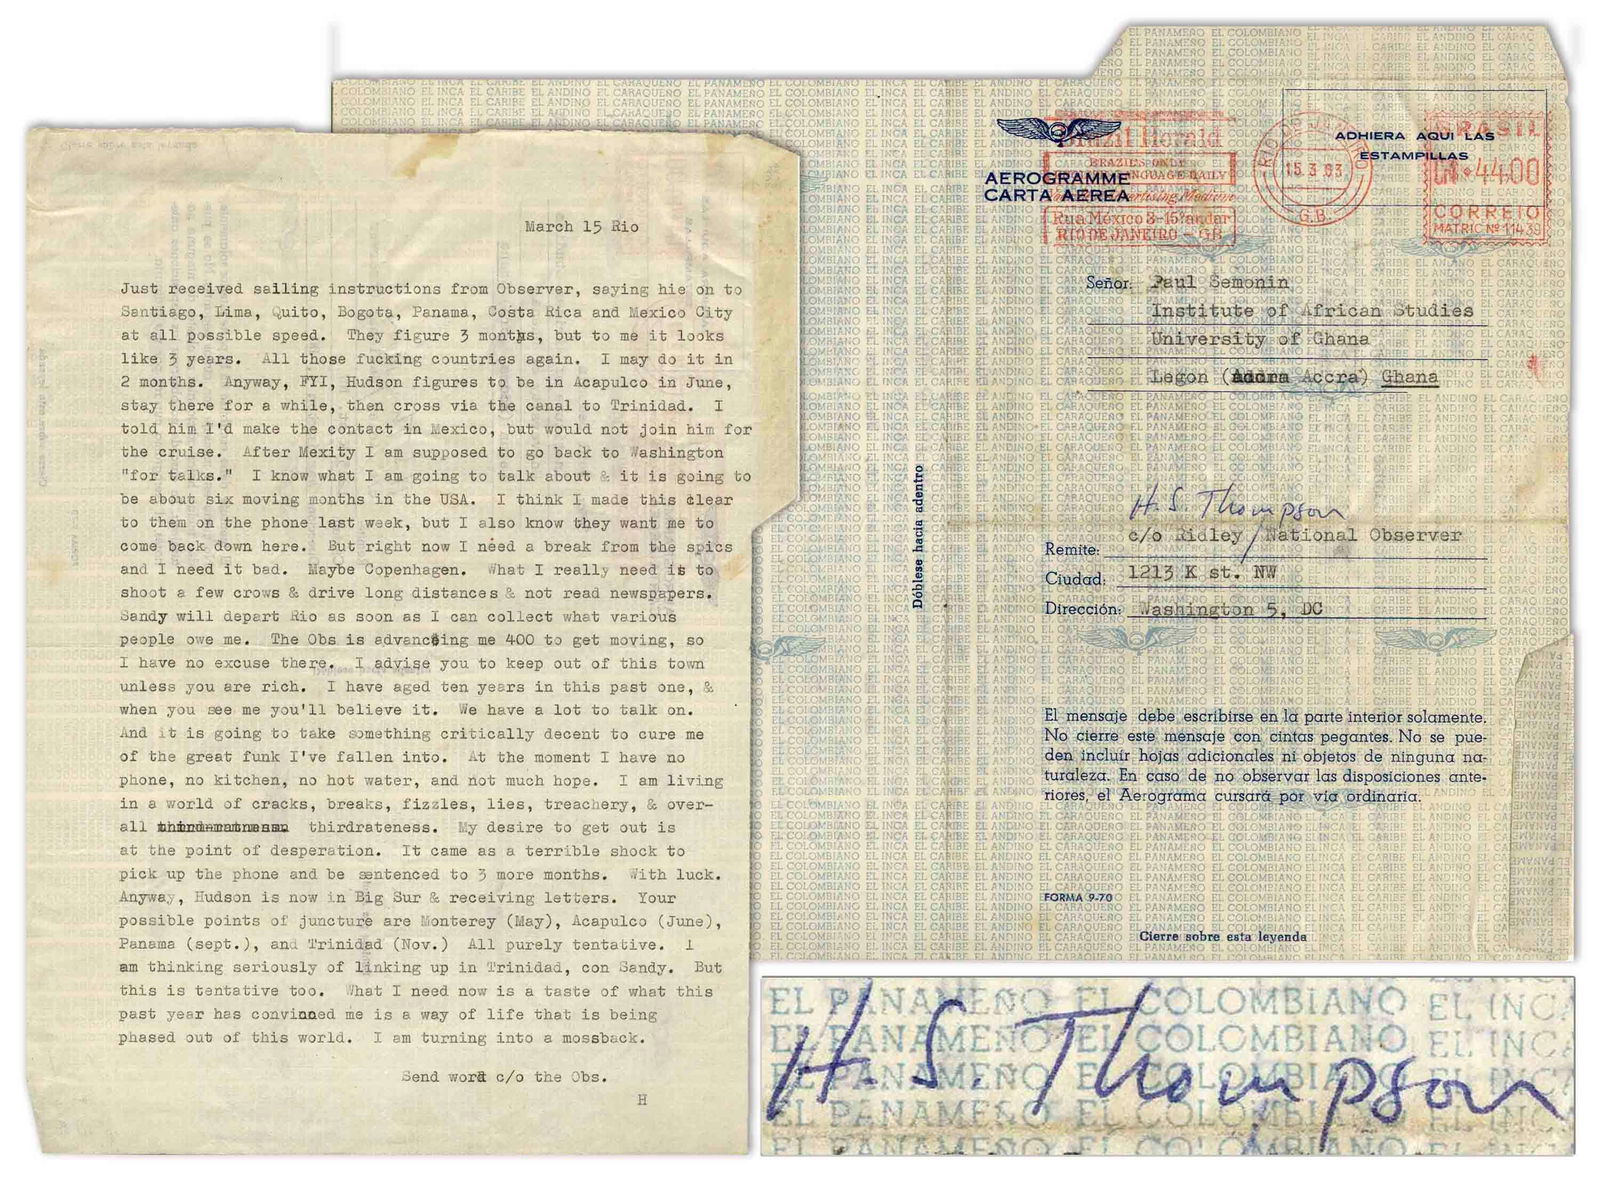 March 15 Rio
Just received sailing instructions from Observer, saying hie on to
Santiago, Lima, Quito, Bogota, Panama, Costa Rica and Mexico City
at all possible speed. They figure 3 months, but to me it looks
like 3 years. All those fucking countries again. I may do it in
2 months. Anyway, FYI, Hudson figures to be in Acapulco in June,
stay there for a while, then cross via the canal to Trinidad. I
told him I'd make the contact in Mexico, but would not join him for
the cruise. After Mexity I am supposed to go back to Washington
"for talks." I know what I am going to talk about & it is going to
be about six moving months in the USA. I think I made this clear
to them on the phone last week, but I also know they want me to
come back down here. But right now I need a break from the spics
and I need it bad. Maybe Copenhagen. What I really need is to
shoot a few crows & drive long distances & not read newspapers.
Sandy will depart Rio as soon as I can collect what various
people owe me. The Obs is advancing me 400 to get moving, so
I have no excuse there. I advise you to keep out of this town
unless you are rich. I have aged ten years in this past one, &
when you see me you'll believe it. We have a lot to talk on.
And it is going to take something critically decent to cure me
of the great funk I've fallen into. At the moment I have no
phone, no kitchen, no hot water, and not much hope. I am living
in a world of cracks, breaks, fizzles, lies, treachery, & over-
all thirdrateness. My desire to get out is
at the point of desperation. It came as a terrible shock to
pick up the phone and be sentenced to 3 more months. With luck.
Anyway, Hudson is now in Big Sur & receiving letters. Your
possible points of juncture are Monterey (May), Acapulco (June),
Panama (sept.), and Trinidad (Nov.) All purely tentative. I
am thinking seriously of linking up in Trinidad, con Sandy. But
this is tentative too. What I need now is a taste of what this
past year has convinned me is a way of life that is being
phased out of this world. I am turning into a mossback.
Send word c/o the Obs.
H
AEROGRAMME
CARTA AEREA
Brazil Herald
BRAZIL'S ONLY
LANGUAGE DAILY
Advertising Medium
Rua México 3-15º andar
RIO DE JANEIRO - GB
RIO DE JANEIRO
15.3.63
G.B.
ADHIERA AQUI LAS
ESTAMPILLAS
BRASIL
4400
CORREIO
MATRIC Nº 11439
Señor: Paul Semonin
Institute of African Studies
University of Ghana
Legon (Accra) Ghana
Dóblese hacia adentro
H. S. Thompson
Remite: c/o Ridley/National Observer
Ciudad: 1213 K st. NW
Dirección: Washington 5, DC
El mensaje debe escribirse en la parte interior solamente.
No cierre este mensaje con cintas pegantes. No se pue-
den incluir hojas adicionales ni objetos de ninguna na-
turaleza. En caso de no observar las disposiciones ante-
riores, el Aerograma cursará por vía ordinaria.
FORMA 9-70
Cierre sobre esta leyenda
EL PANAMEÑO EL COLOMBIANO EL INCA
H. S. Thompson